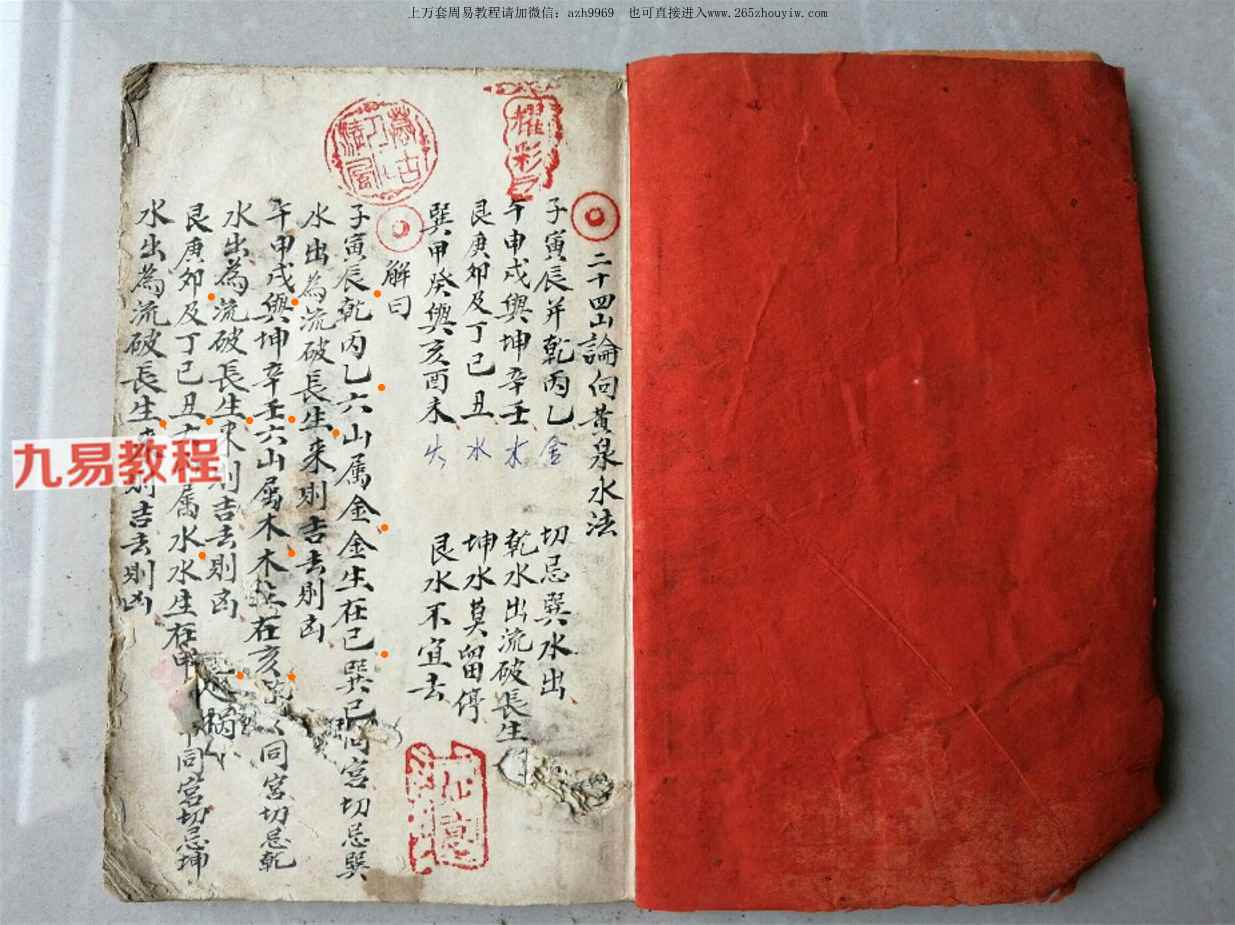 上万套周易教程请加微信：azh9969 也可直接进入www.265zhouyiw.com
二十四山論向黃泉水法
子寅辰并乾丙乙 金 切忌巽水出
午申戌與坤辛壬 木 乾水出流破長生
艮庚卯及丁巳丑 水 坤水莫留停
巽甲癸與亥酉未 火 艮水不宜去
解曰
子寅辰乾丙乙六山属金金生在巳巽巳同宮切忌巽
水出為流破長生来則吉去則凶
午申戌與坤辛壬六山属木木生在亥 同宮切忌乾
水出為流破長生来則吉去則凶
艮庚卯及丁巳丑 属水水生在申 同宮切忌坤
水出為流破長生来則吉去則凶
耀彩
如意
九易教程